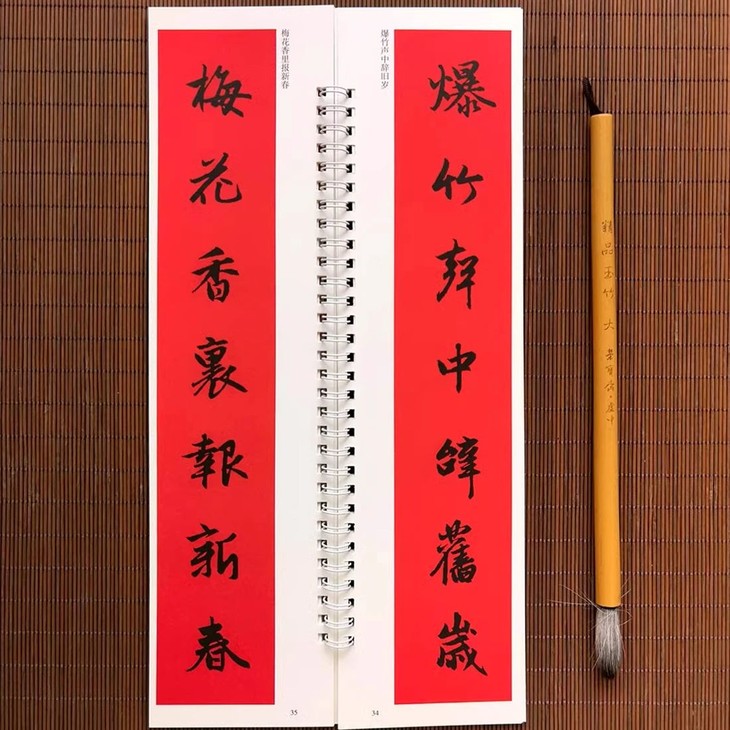 爆竹声中辞旧岁
爆竹聲中辭舊歲
34
梅花香里报新春
梅花香裏報新春
35
精品玉竹 大